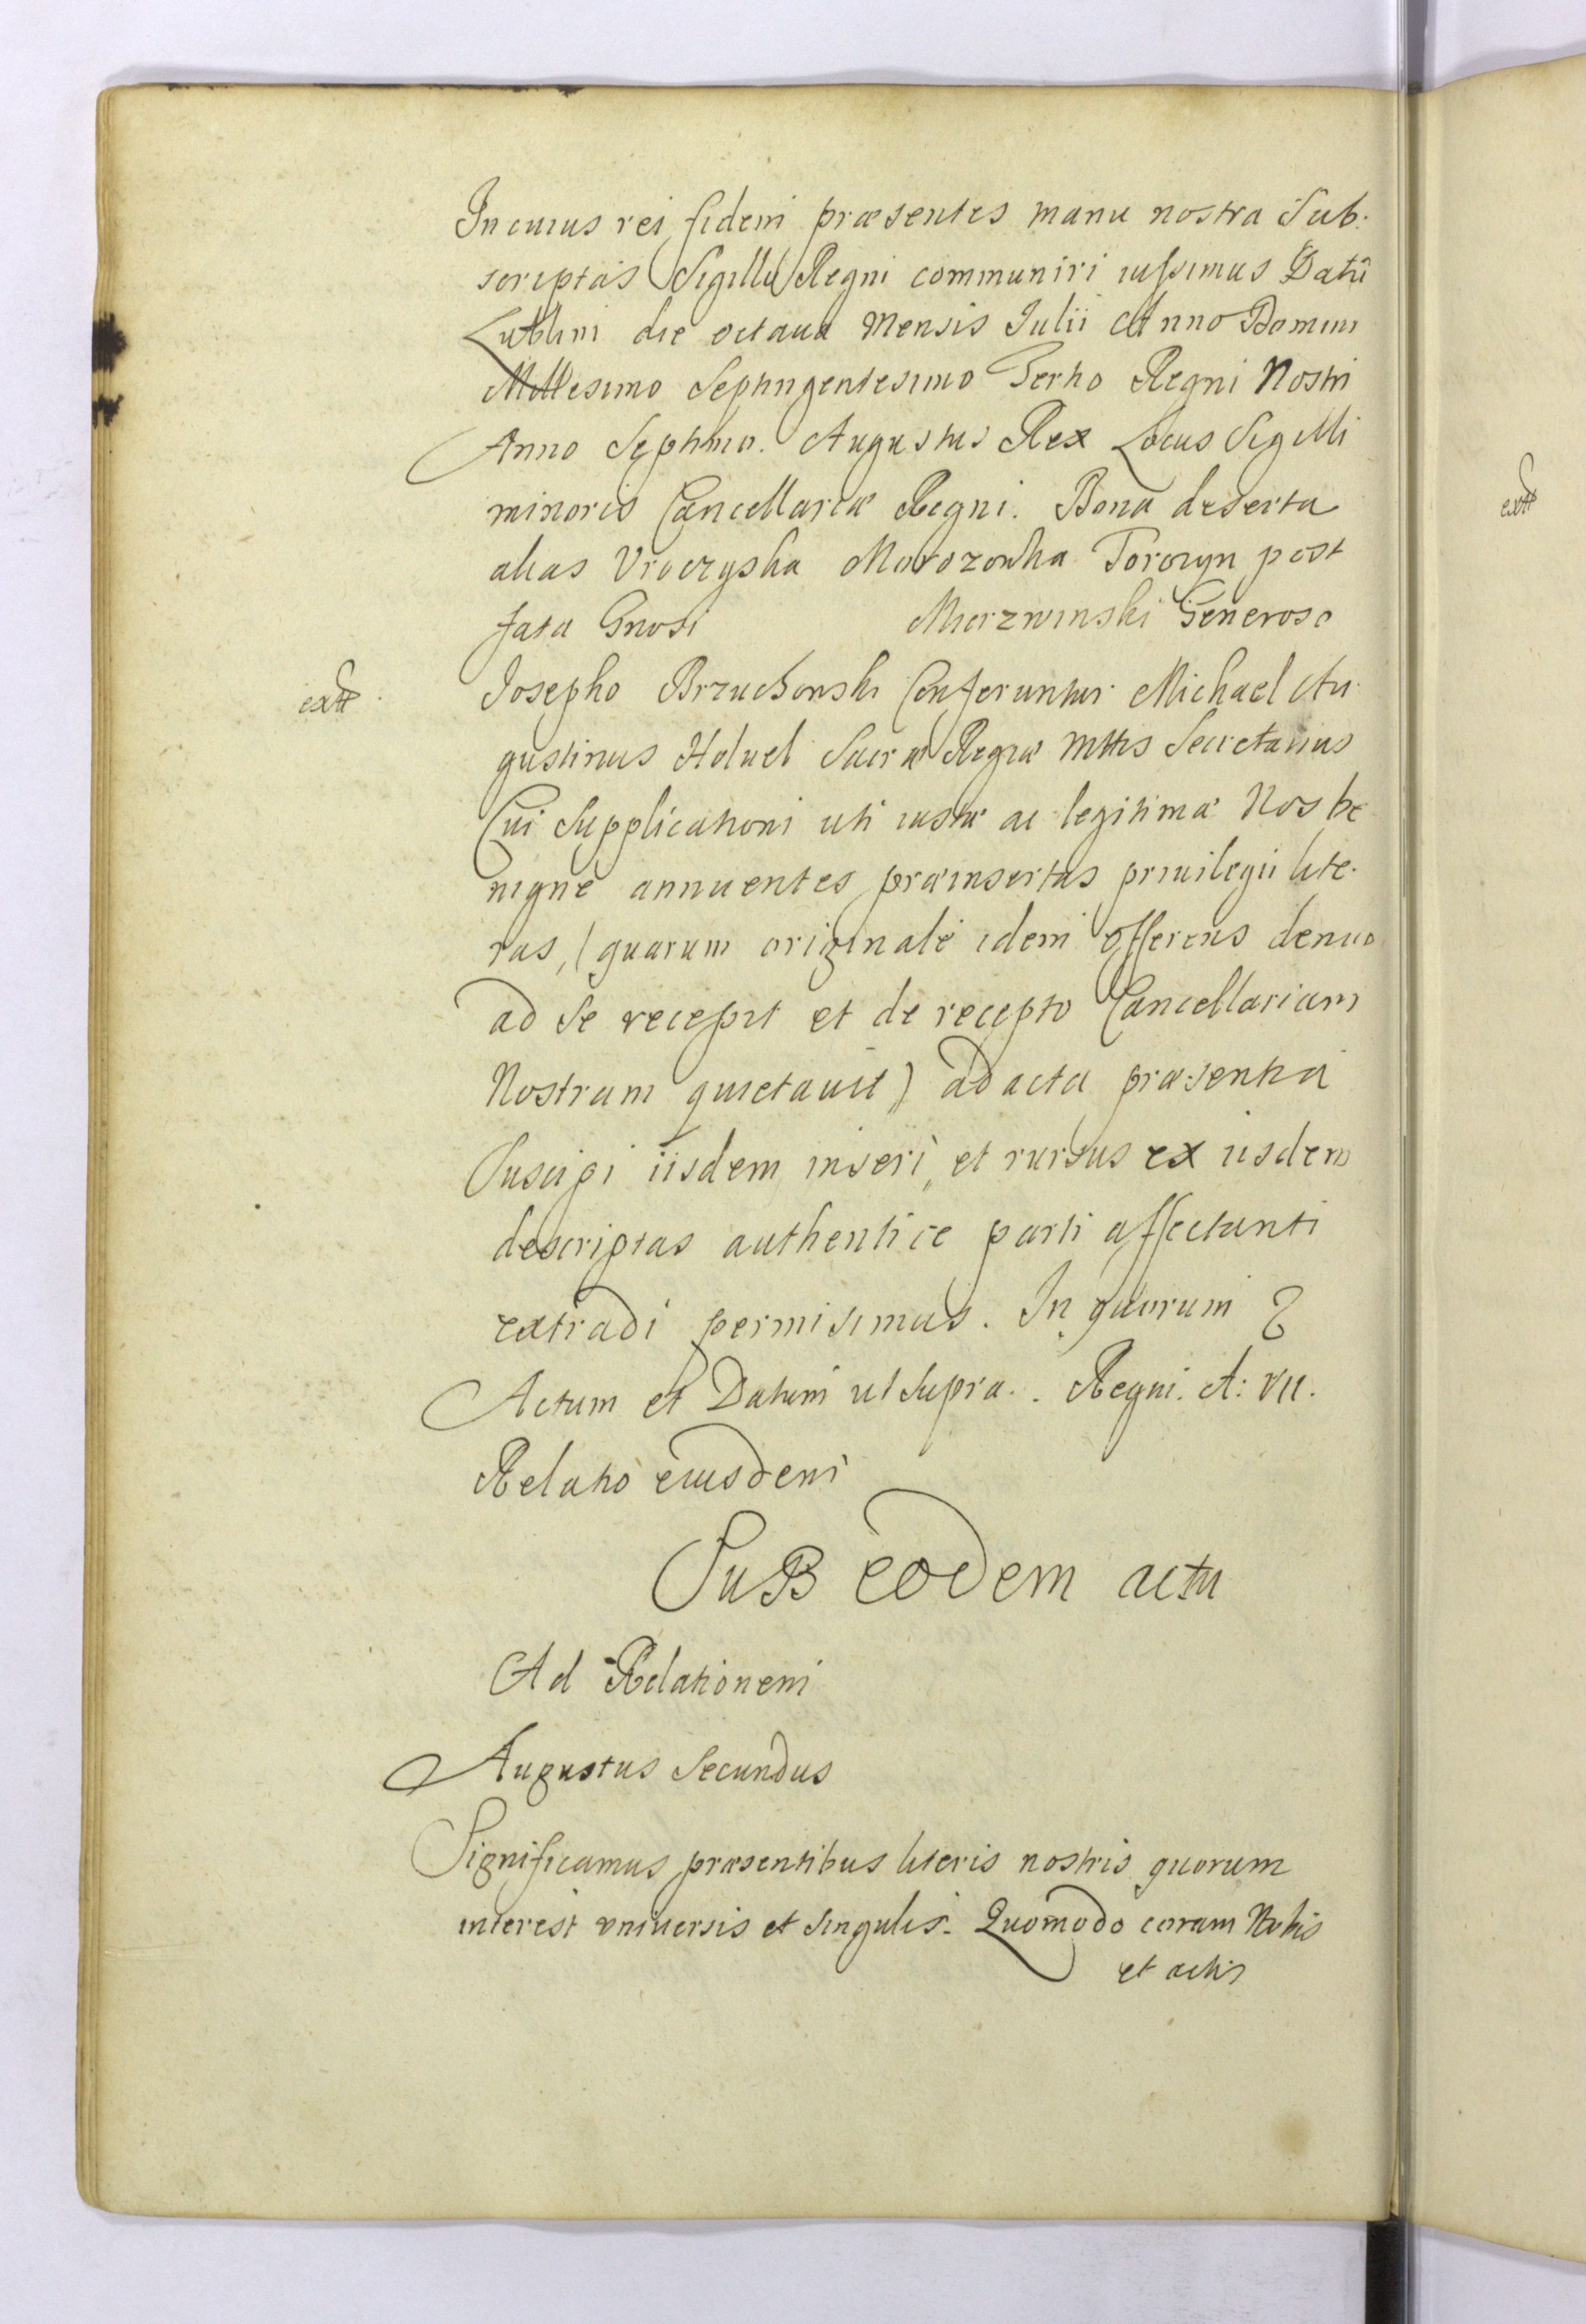 In cuius rei fidem præsentes manu nostra Sub.
scriptas Sigillo Regni communiri iussimus Datū
Lublini die octaua Mensis Iulii Anno Domini
Millesimo Septingentesimo Tertio Regni Nostri
Anno Septimo. Augustus Rex Locus Sigilli
minoris Cancellariæ Regni. Bona deserta
alias Vroczyska Morozowka Torczyn post
fata Gnosi Mierzwinski Generoso
extt. Josepho Brzuchowski Conferuntur Michael Au
gustinus Holuel Sacræ Regiæ Mttis Secretarius
Cui Supplicationi uti iustæ ac legitimæ Nos be
nigne annuentes præinsertas priuilegii lite.
ras, (quarum originale idem offerens denuo
ad se recepit et de recepto Cancellariam
Nostram quietauit) ad acta præsentia
Suscipi iisdem inseri, et rursus ex iisdem
descriptas authentice parti affectanti
extradi permisimus. In quorum
Actum et Datum ut supra.. Regni. A: VII.
Relatio eiusdem
SuB eodem actu
Ad Relationem
Augustus Secundus
Significamus præsentibus literis nostris quorum
interest vniuersis et singulis. Quomodo coram Nobis
et actis
extt